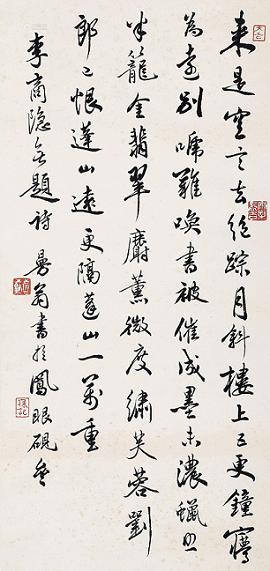 來是空言去絕踪月斜樓上五更鐘夢
為遠別啼難喚書被催成墨未濃蠟照
半籠金翡翠麝薰微度繡芙蓉劉
郎已恨蓬山遠更隔蓬山一萬重
李商隐無題詩 曼翁書於鳳眼硯齋